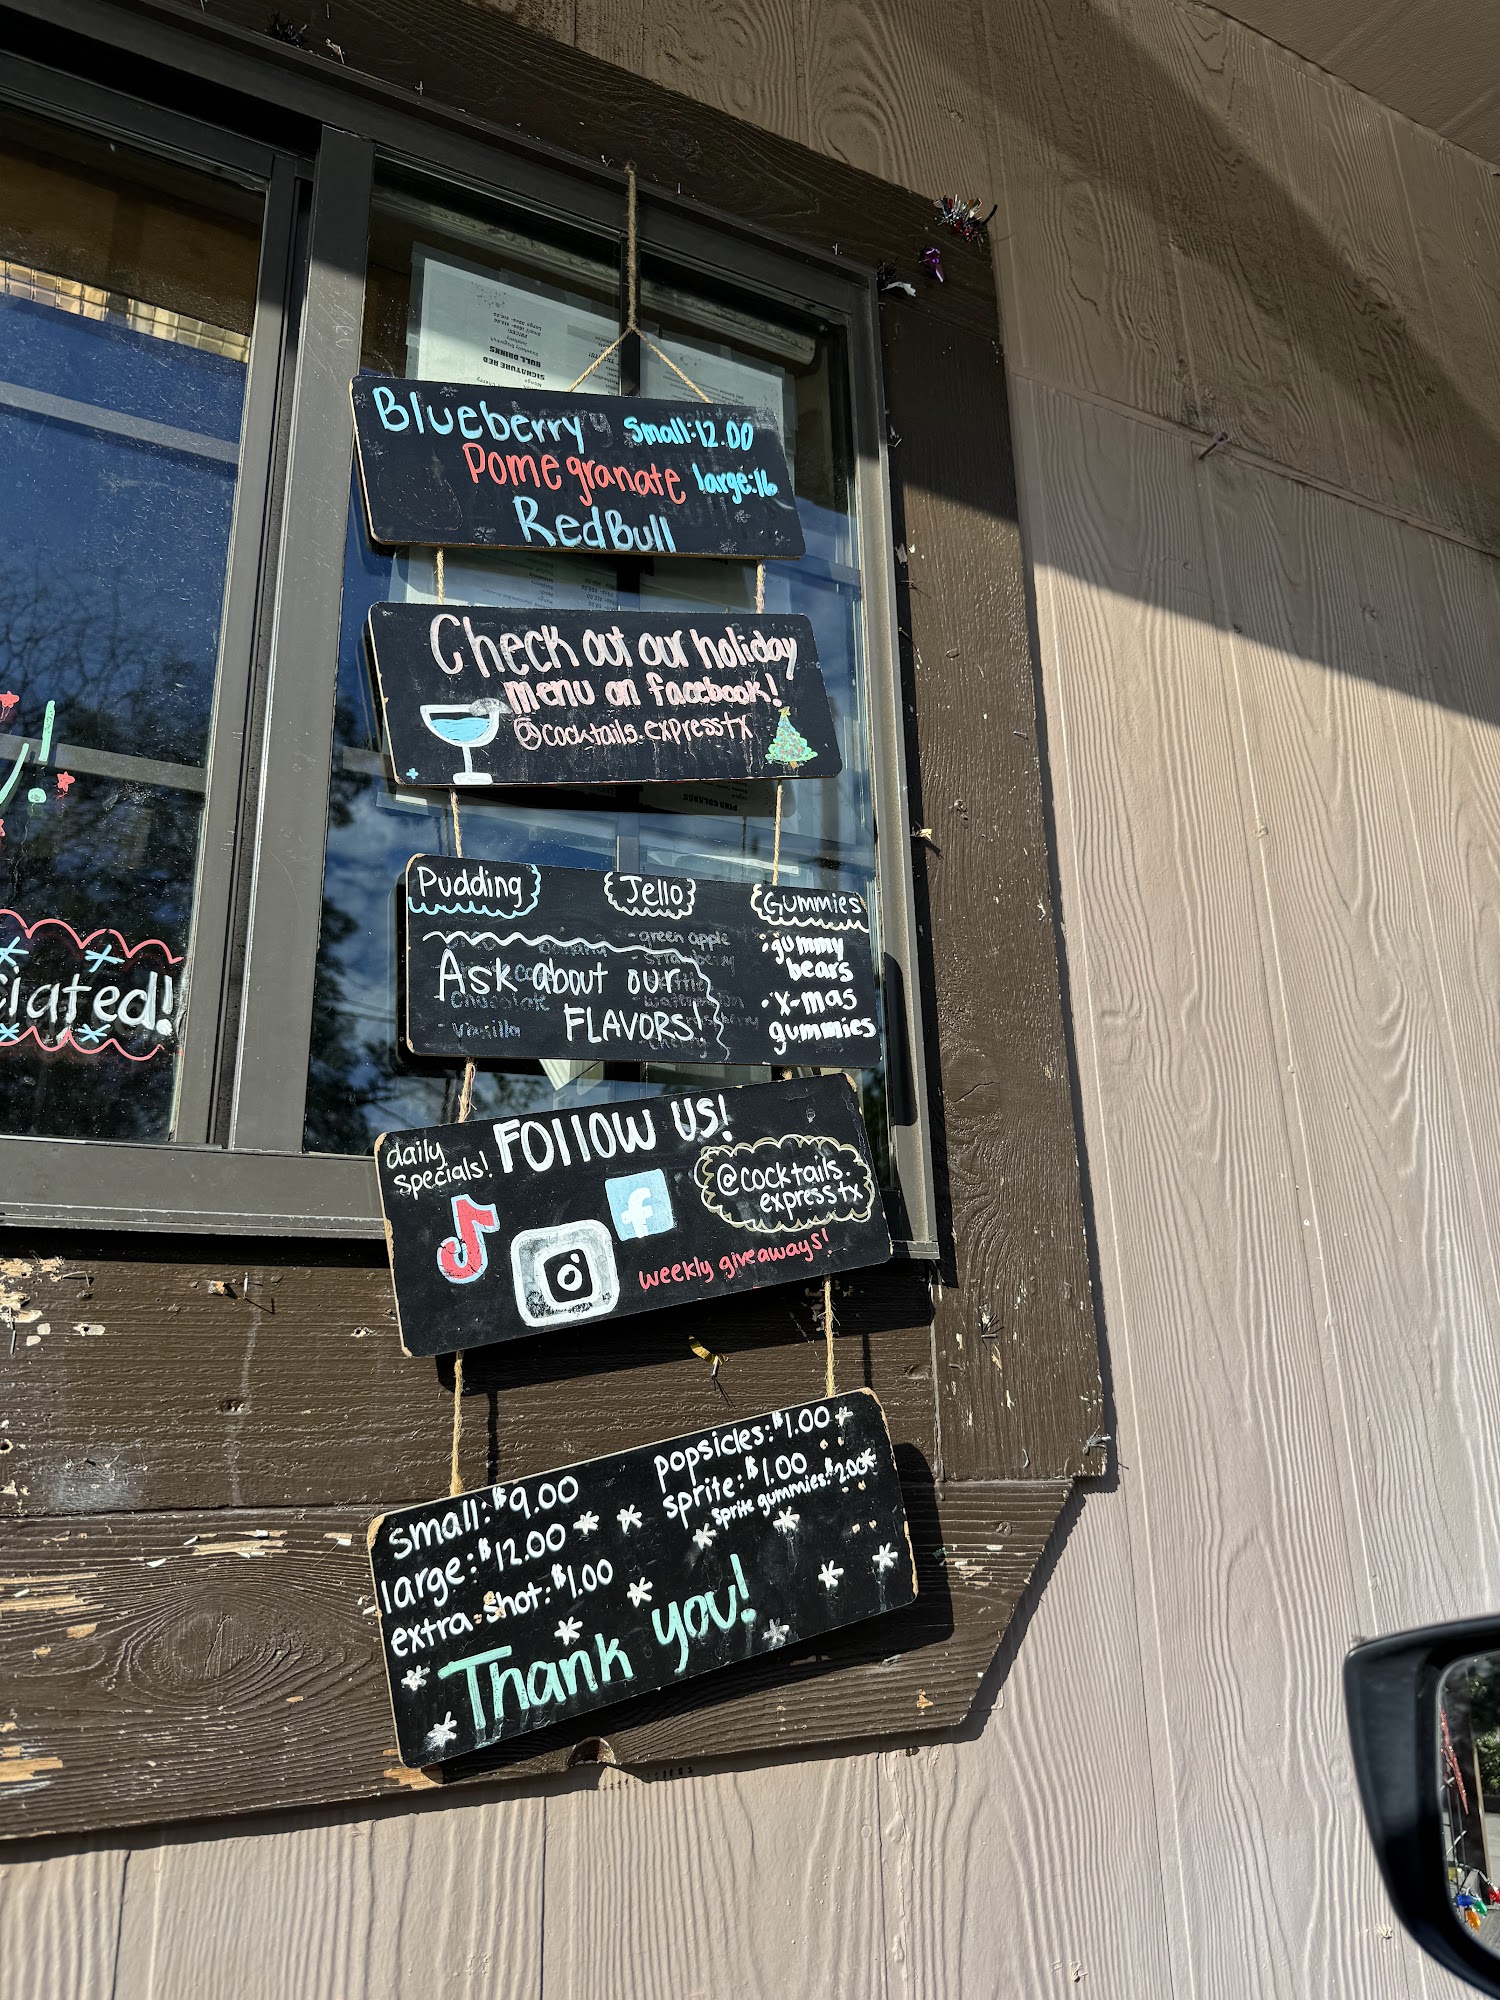 SIGNATURE RED
BULL DRINKS
Blueberry small:12.00
Pomegranate large:16
RedBull
Check out our holiday
menu on facebook!
@cocktails.expresstx
PINA COLADAS
Pudding Jello Gummies
- green apple
Ask about our
FLAVORS
Chocolate
- Vanilla
• gummy
bears
• x-mas
gummies
ciated!
daily
specials!
FOllOW US!
f
@cocktails.
expresstx
weekly giveaways!
small: $9.00
large: $12.00
extra-shot: $1.00
popsicles: $1.00
sprite: $1.00
sprite gummies: $2.00
Thank you!